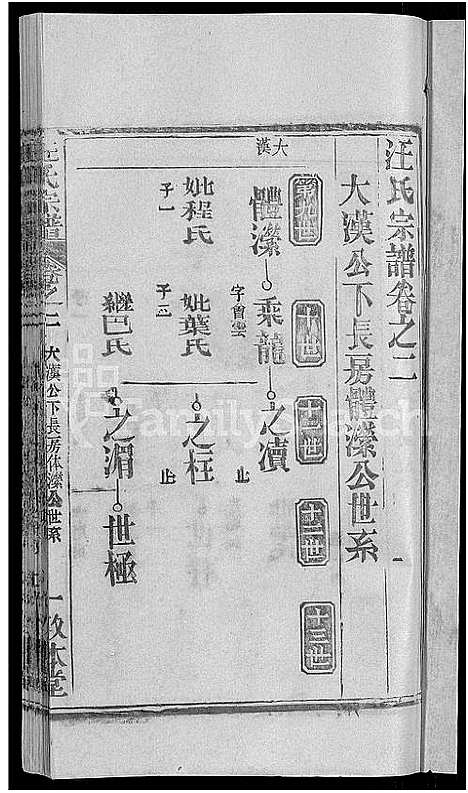 汪氏宗譜卷之二
大漢公下長房體濴公世系
第九世
十世
十一世
十二世
十三世
大漢
體濴
乘龍
字曾雲
之瀆
止
妣程氏
子一
妣葉氏
子三
之柱
止
繼巴氏
之湄
世極
汪氏宗譜
卷之二
大漢公下長房体濴公世系
一
敦本堂
FamilySearch